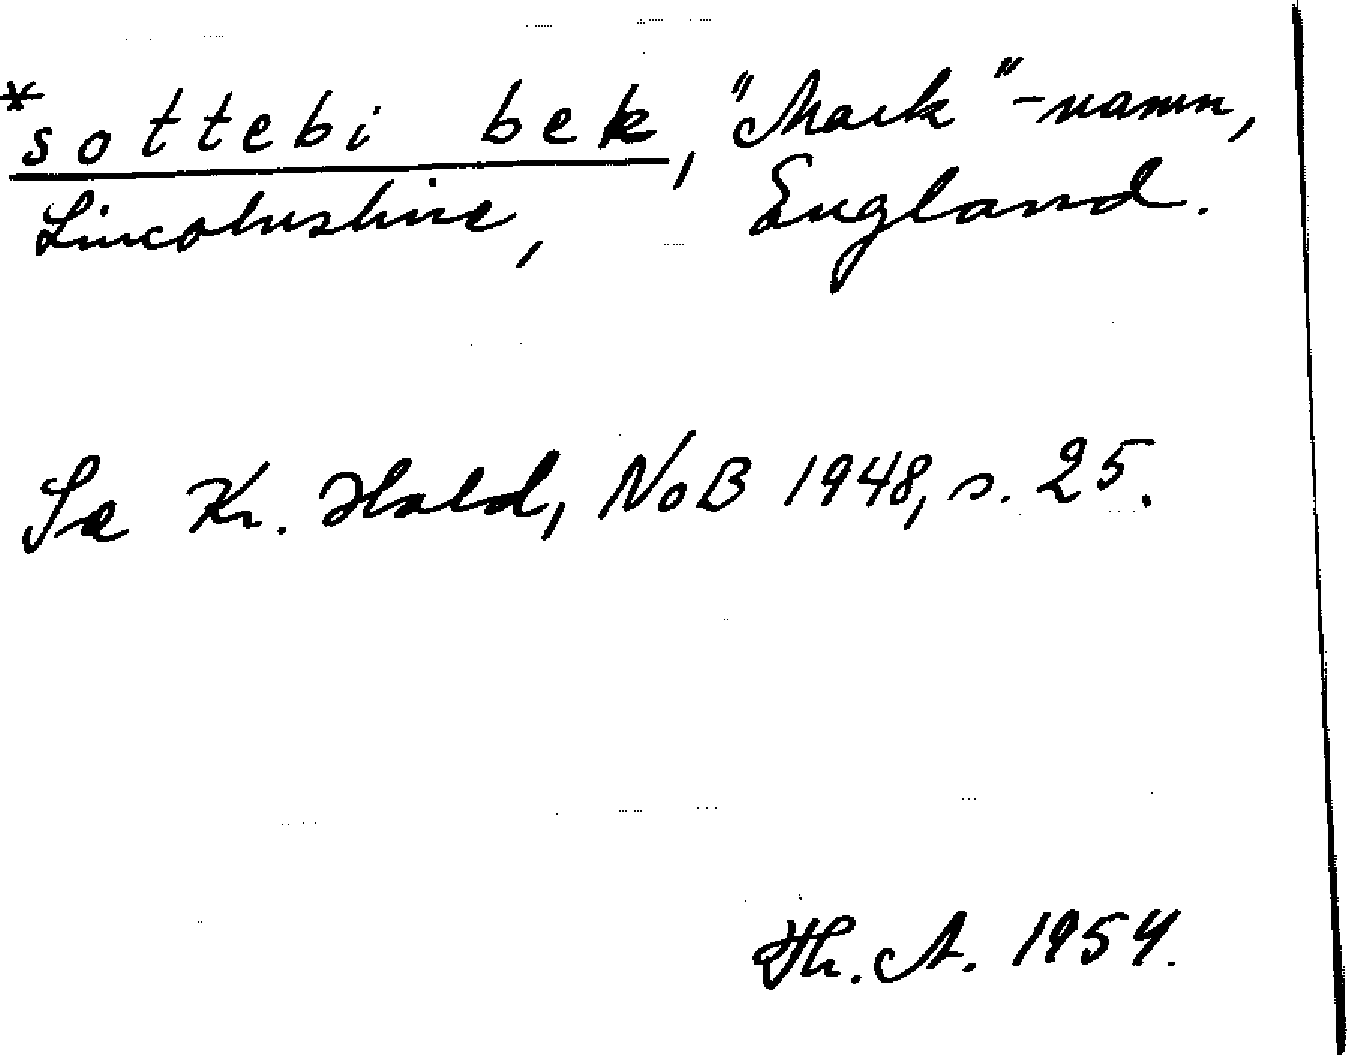 *sottebi bek, "Mark"-namn,
Lincolnshire, England.
Se Kr. Hald, NoB 1948, s. 25.
Th. A. 1954.